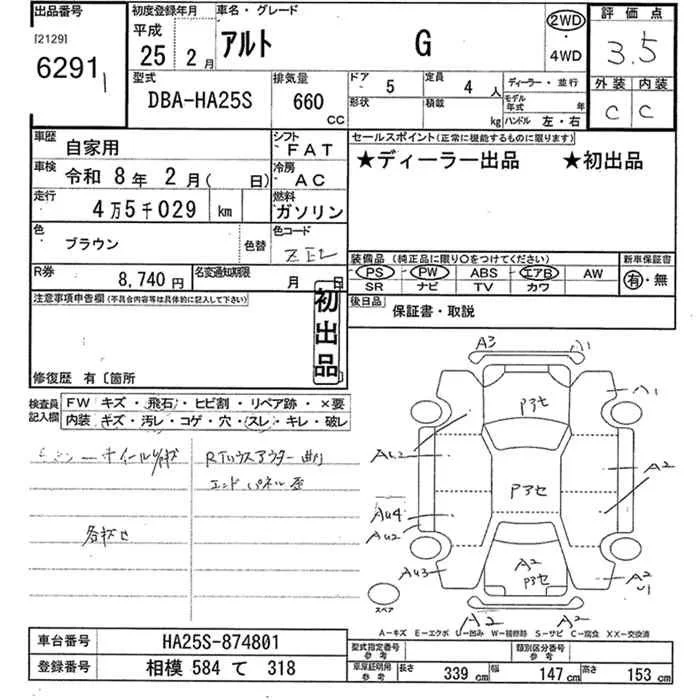 出品番号 初度登録年月 車名・グレード 2WD 評価点
[2129] 平成 アルト G ・ 3.5
6291 25 2月 4WD
型式 排気量 ドア 5 定員 4人 ディーラー・並行 外装 内装
DBA-HA25S 660 CC 形状 積載 kg モデル年式 年 C C
ハンドル 左・右
車歴 自家用 シフト FAT セールスポイント(正常に機能するものに限ります)
車検 令和 8年 2月( 日) 冷房 AC ★ディーラー出品 ★初出品
走行 4万5千029 km 燃料 ガソリン
色 ブラウン 色替 色コード
装備品 (純正品に限り○をつけてください) 新車保証書
PS PW ABS エアB AW 有・無
SR ナビ TV カワ
R券 8,740円 名変通知期限 月 日
後日品 保証書・取説
注意事項申告欄(不具合内容等は具体的に記入して下さい)
初出品
修復歴 有〔箇所
検査員記入欄 FW キズ・飛石・ヒビ割・リペア跡・×要
内装 キズ・汚レ・コゲ・穴・スレ・キレ・破レ
エンド パネル歪
A3 A1
A1
P3セ
AU2 A2
P3セ
AU4
AU2
A2
P3セ
AU3 A2
U1
スペア
A2 A2
A-キズ E-エクボ U-凹み W-補修跡 S-サビ C-腐食 XX-交換済
車台番号 HA25S-874801
登録番号 相模 584 て 318
型式指定番号 参考 類別区分番号 参考
車庫証明用 参考 長さ 339cm 幅 147cm 高さ 153cm